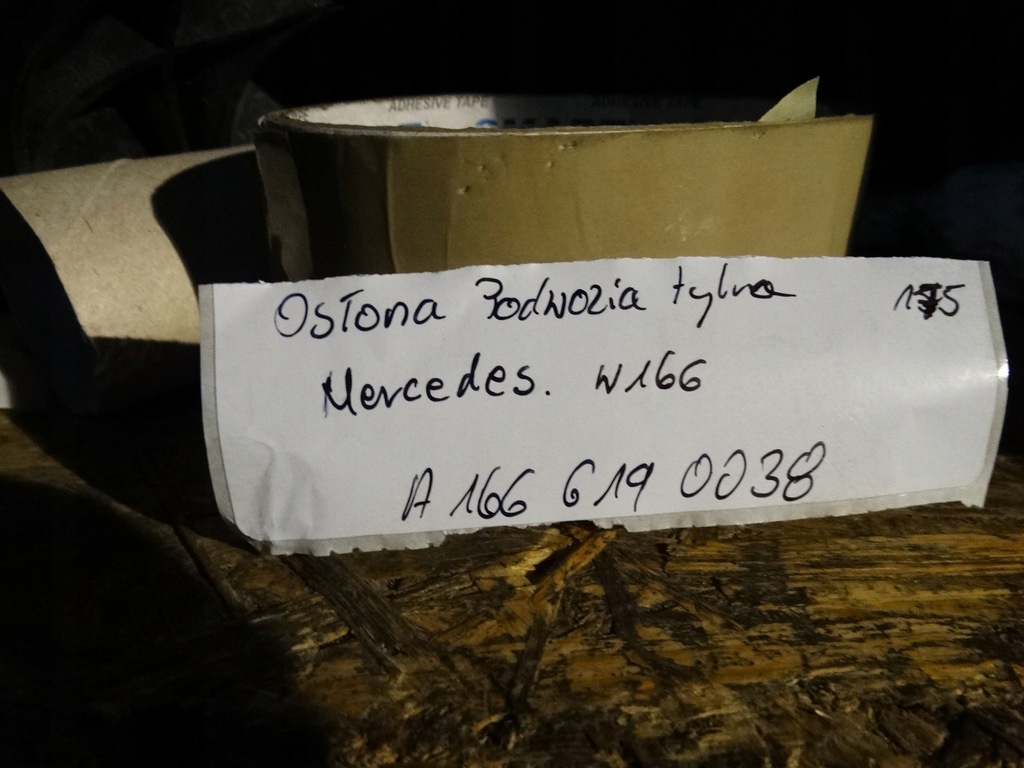 ADHESIVE TAPE ADHESIVE TAPE
Osłona Podwozia tylna
Mercedes. W166
A 166 619 0038